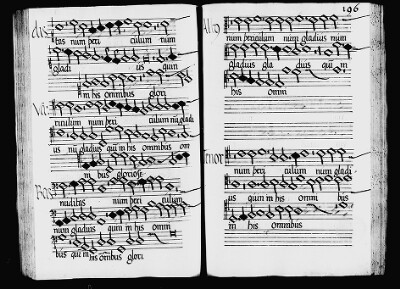 dis
tas num peri culum num
gladi us quin
in his omnibus glori
Va
riculum num peri culum nū gladi
us nū gladius quī in his omnibus om
ni bus gloriose
Bas
nuditas num peri culum
num gladius quin in his omni
bus quī in his omnibus glori
196
Alto
num periculum num gladius num
gladius gla dius quī in
his omni
Tenor
num peri culum num gladi
us quin in his omni bus
in his omnibus